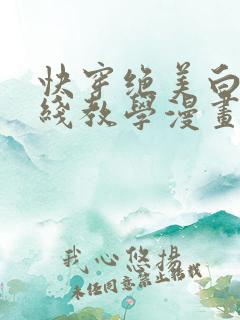 快穿绝美白
綫教學漫畫
我心悠揚
未经同意禁止转载